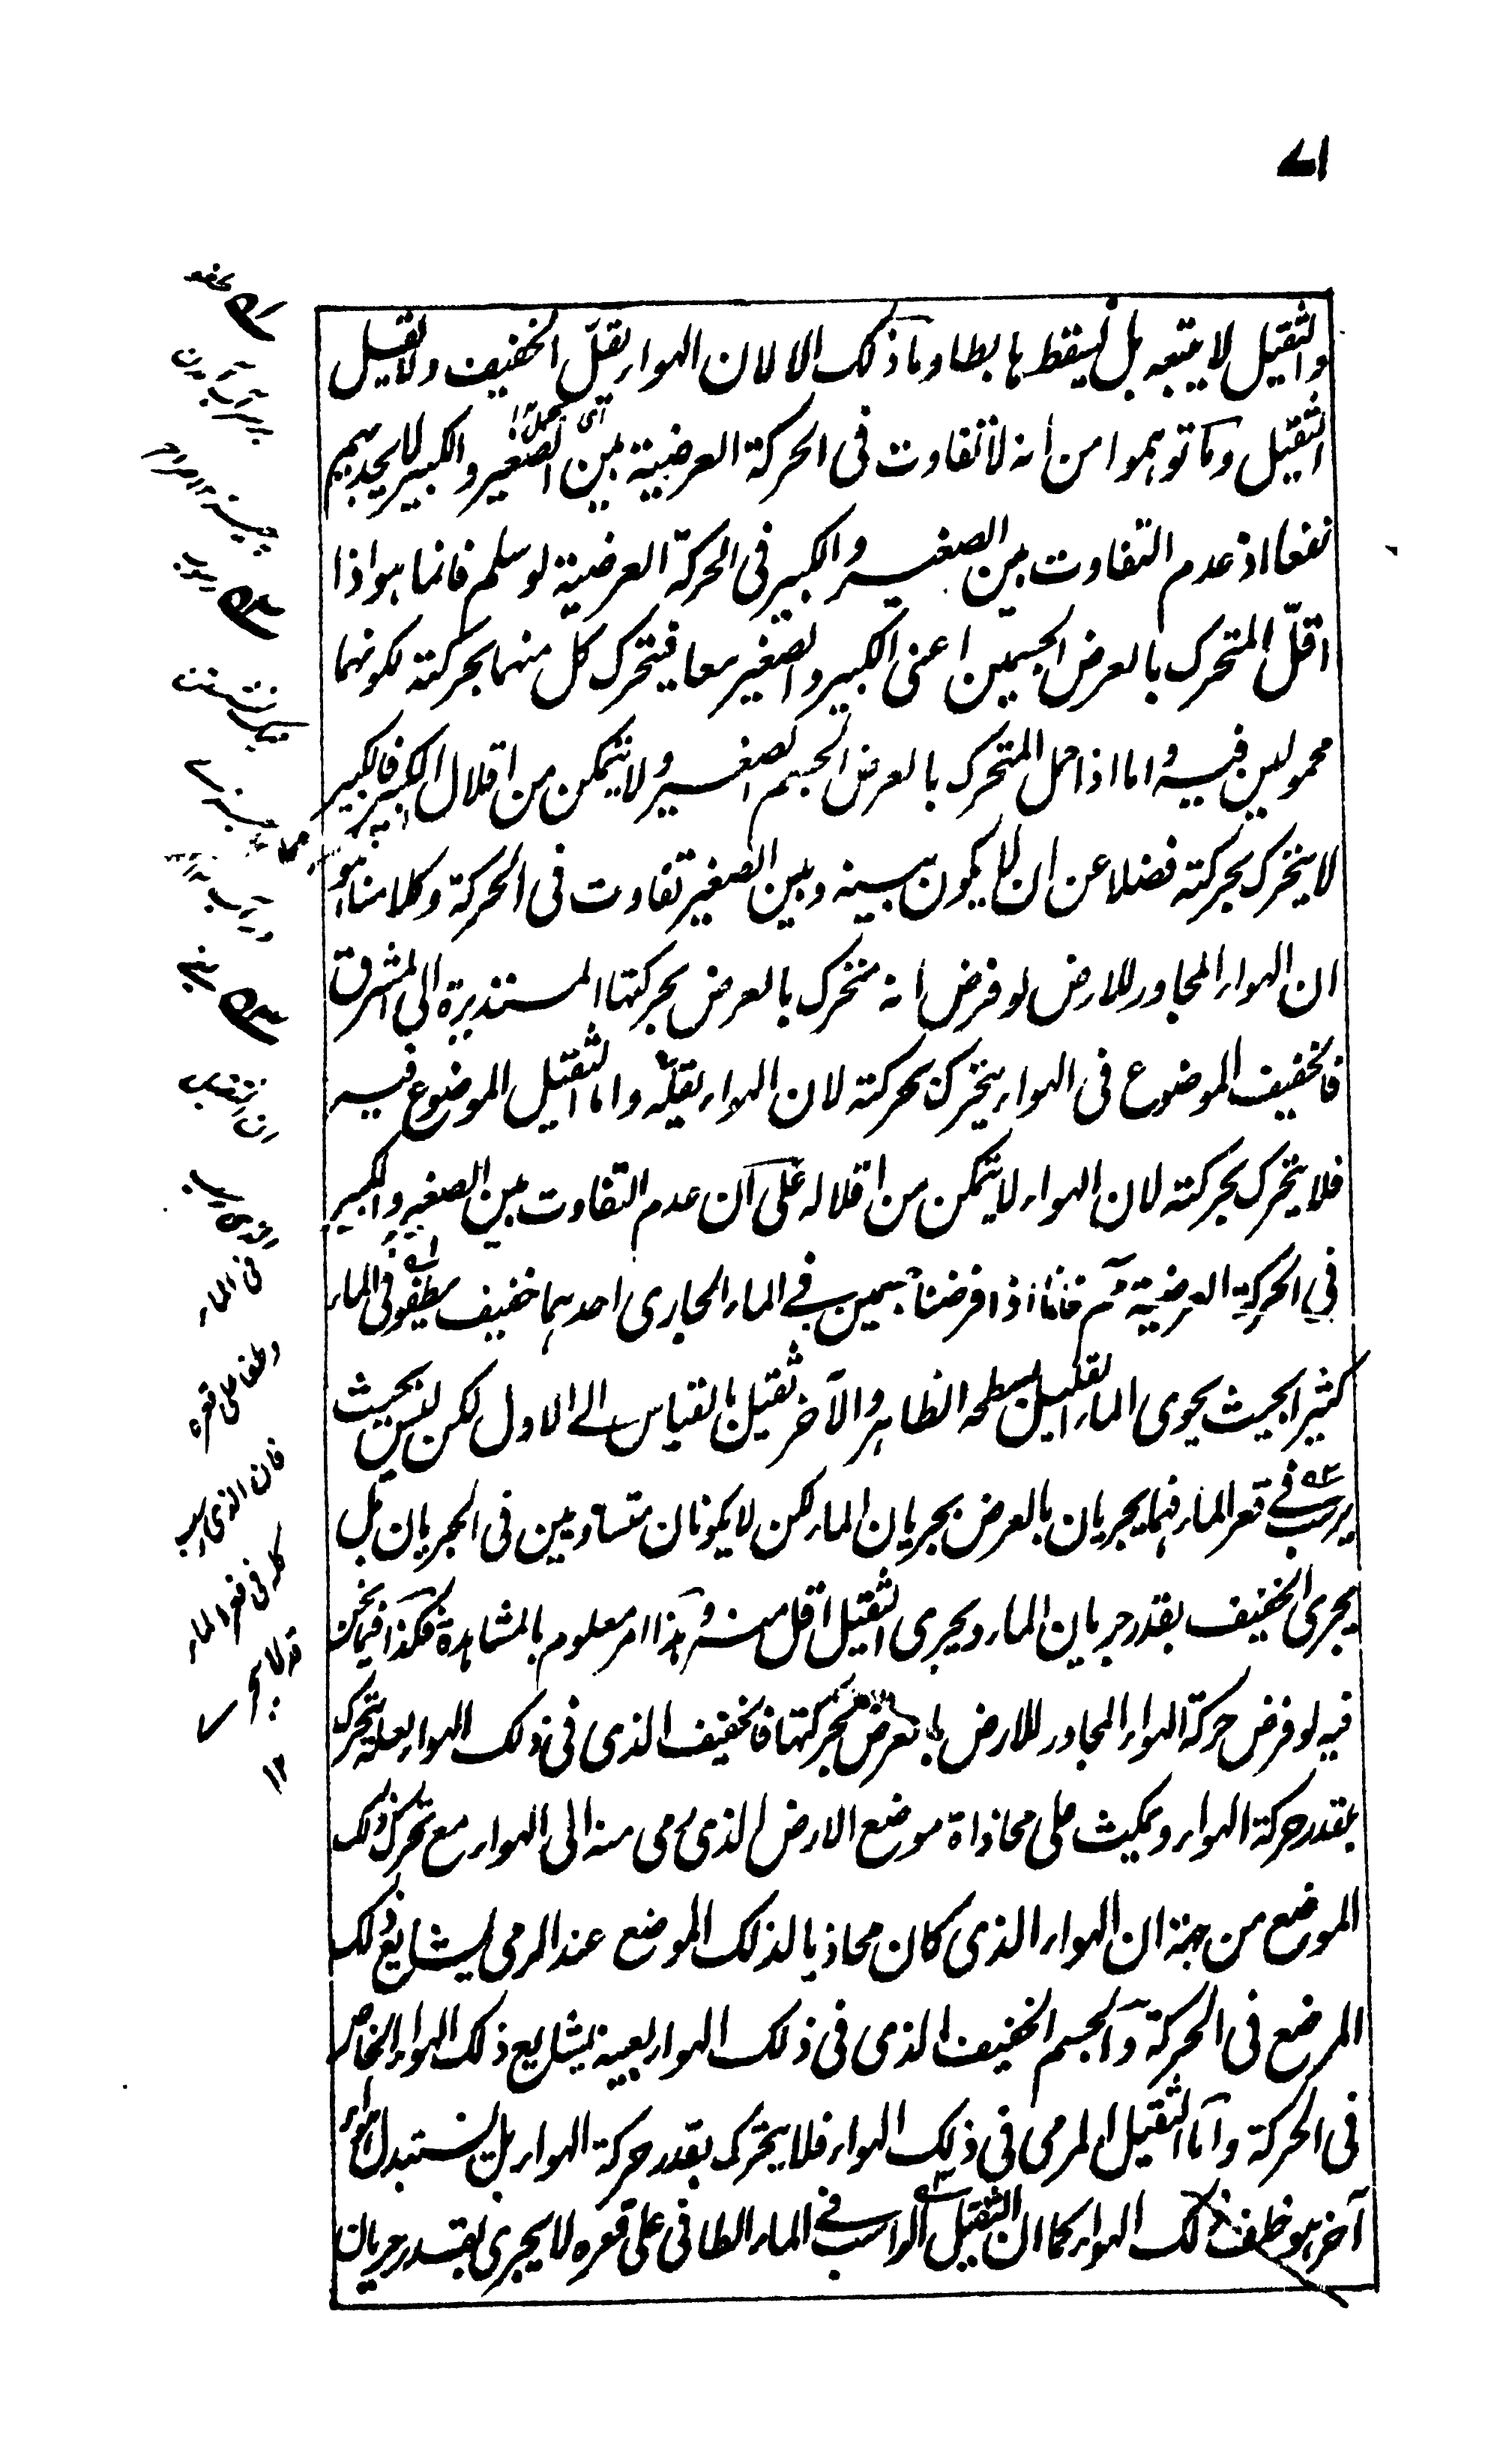 ۷۱
والثقيل لا يتبعه بل يسقط هابطا وما ذلك الا لان الهواء يقلّ الخفيف ولا يقل
الثقيل وما توهموا من انه لا تفاوت فى الحركة العرضية بين الصغير والكبير لا يجديهم
نفعا اذ عدم التفاوت بين الصغير والكبير فى الحركة العرضية لو سلم فانما هو اذا
اقلّ المتحرك بالعرض الجسمين اعنى الكبير والصغير معا فيتحرك كل منهما بحركته لكونهما
محمولين فيه واما اذا حمل المتحرك بالعرض الجسم الصغير ولا يتمكن من اقلال الكبير فالكبير
لا يتحرك بحركته فضلا عن ان لا يكون بينه وبين الصغير تفاوت فى الحركة وكلامنا هو
ان الهواء المجاور للارض لو فرض انه متحرك بالعرض بحركتها المستديرة الى المشرق
فالخفيف الموضوع فى الهواء يتحرك بحركته لان الهواء يقله واما الثقيل الموضوع فيه
فلا يتحرك بحركته لان الهواء لا يتمكن من اقلاله على ان عدم التفاوت بين الصغير والكبير
في الحركة العرضية مم فانا اذا فرضنا جسمين في الماء الجارى احدهما خفيف يطفو فى الماء
كثيرا بحيث يحوى الماء القليل بسطحه الظاهر والآخر ثقيل بالقياس الى الاول لكن ليس بحيث
يرسب في قعر الماء فهما يجريان بالعرض بجريان الماء لكن لا يكونان متساويين فى الجريان بل
يجرى الخفيف بقدر جريان الماء ويجرى الثقيل اقل منه وهذا امر معلوم بالمشاهدة فكذا فيما نحن
فيه لو فرض حركة الهواء المجاور للارض بالعرض بحركتها فالخفيف الذى فى ذلك الهواء لعله يتحرك
بقدر حركة الهواء ويمكث على محاذاة موضع الارض الذى رمى منه الى الهواء مع تحرك ذلك
الموضع من جهة ان الهواء الذى كان محاذيا لذلك الموضع عند الرمى يشايع ذلك
الموضع فى الحركة والجسم الخفيف الذى فى ذلك الهواء بعينه يشايع ذلك الهواء الخاص
فى الحركة واما الثقيل المرمى فى ذلك الهواء فلا يتحرك بقدر حركة الهواء بل يستبدل هواء
آخر هو خلف ذلك الهواء كما ان الثقيل الراسب في الماء الطافى على قعره لا يجرى بقدر جريان
فى الماء
وطفا على قعره
فان الذى يرسب
كله فى قعر الماء
قد لا يجرى
۱۲